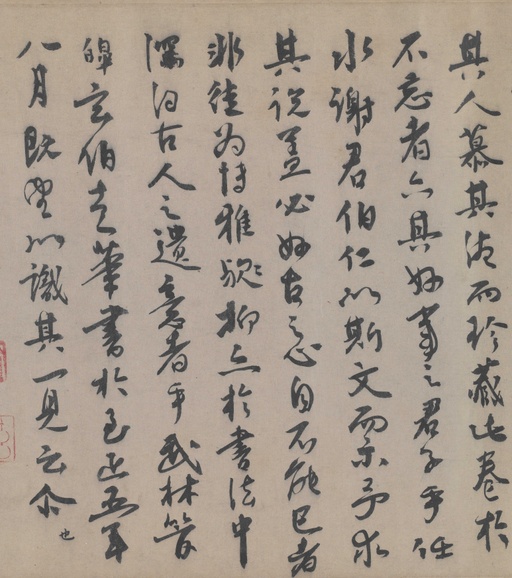 其人慕其清而珍藏此卷於
不忘者亦其好事之君子乎任
水謝君伯仁以斯文而示予求
其説蓋必好古之心自不能已者
非徒为博雅

抑亦於書法中
深得古人之遺意者乎武林管
皞玄伯走筆書於至正五年
八月既望以識其一見云尒
也